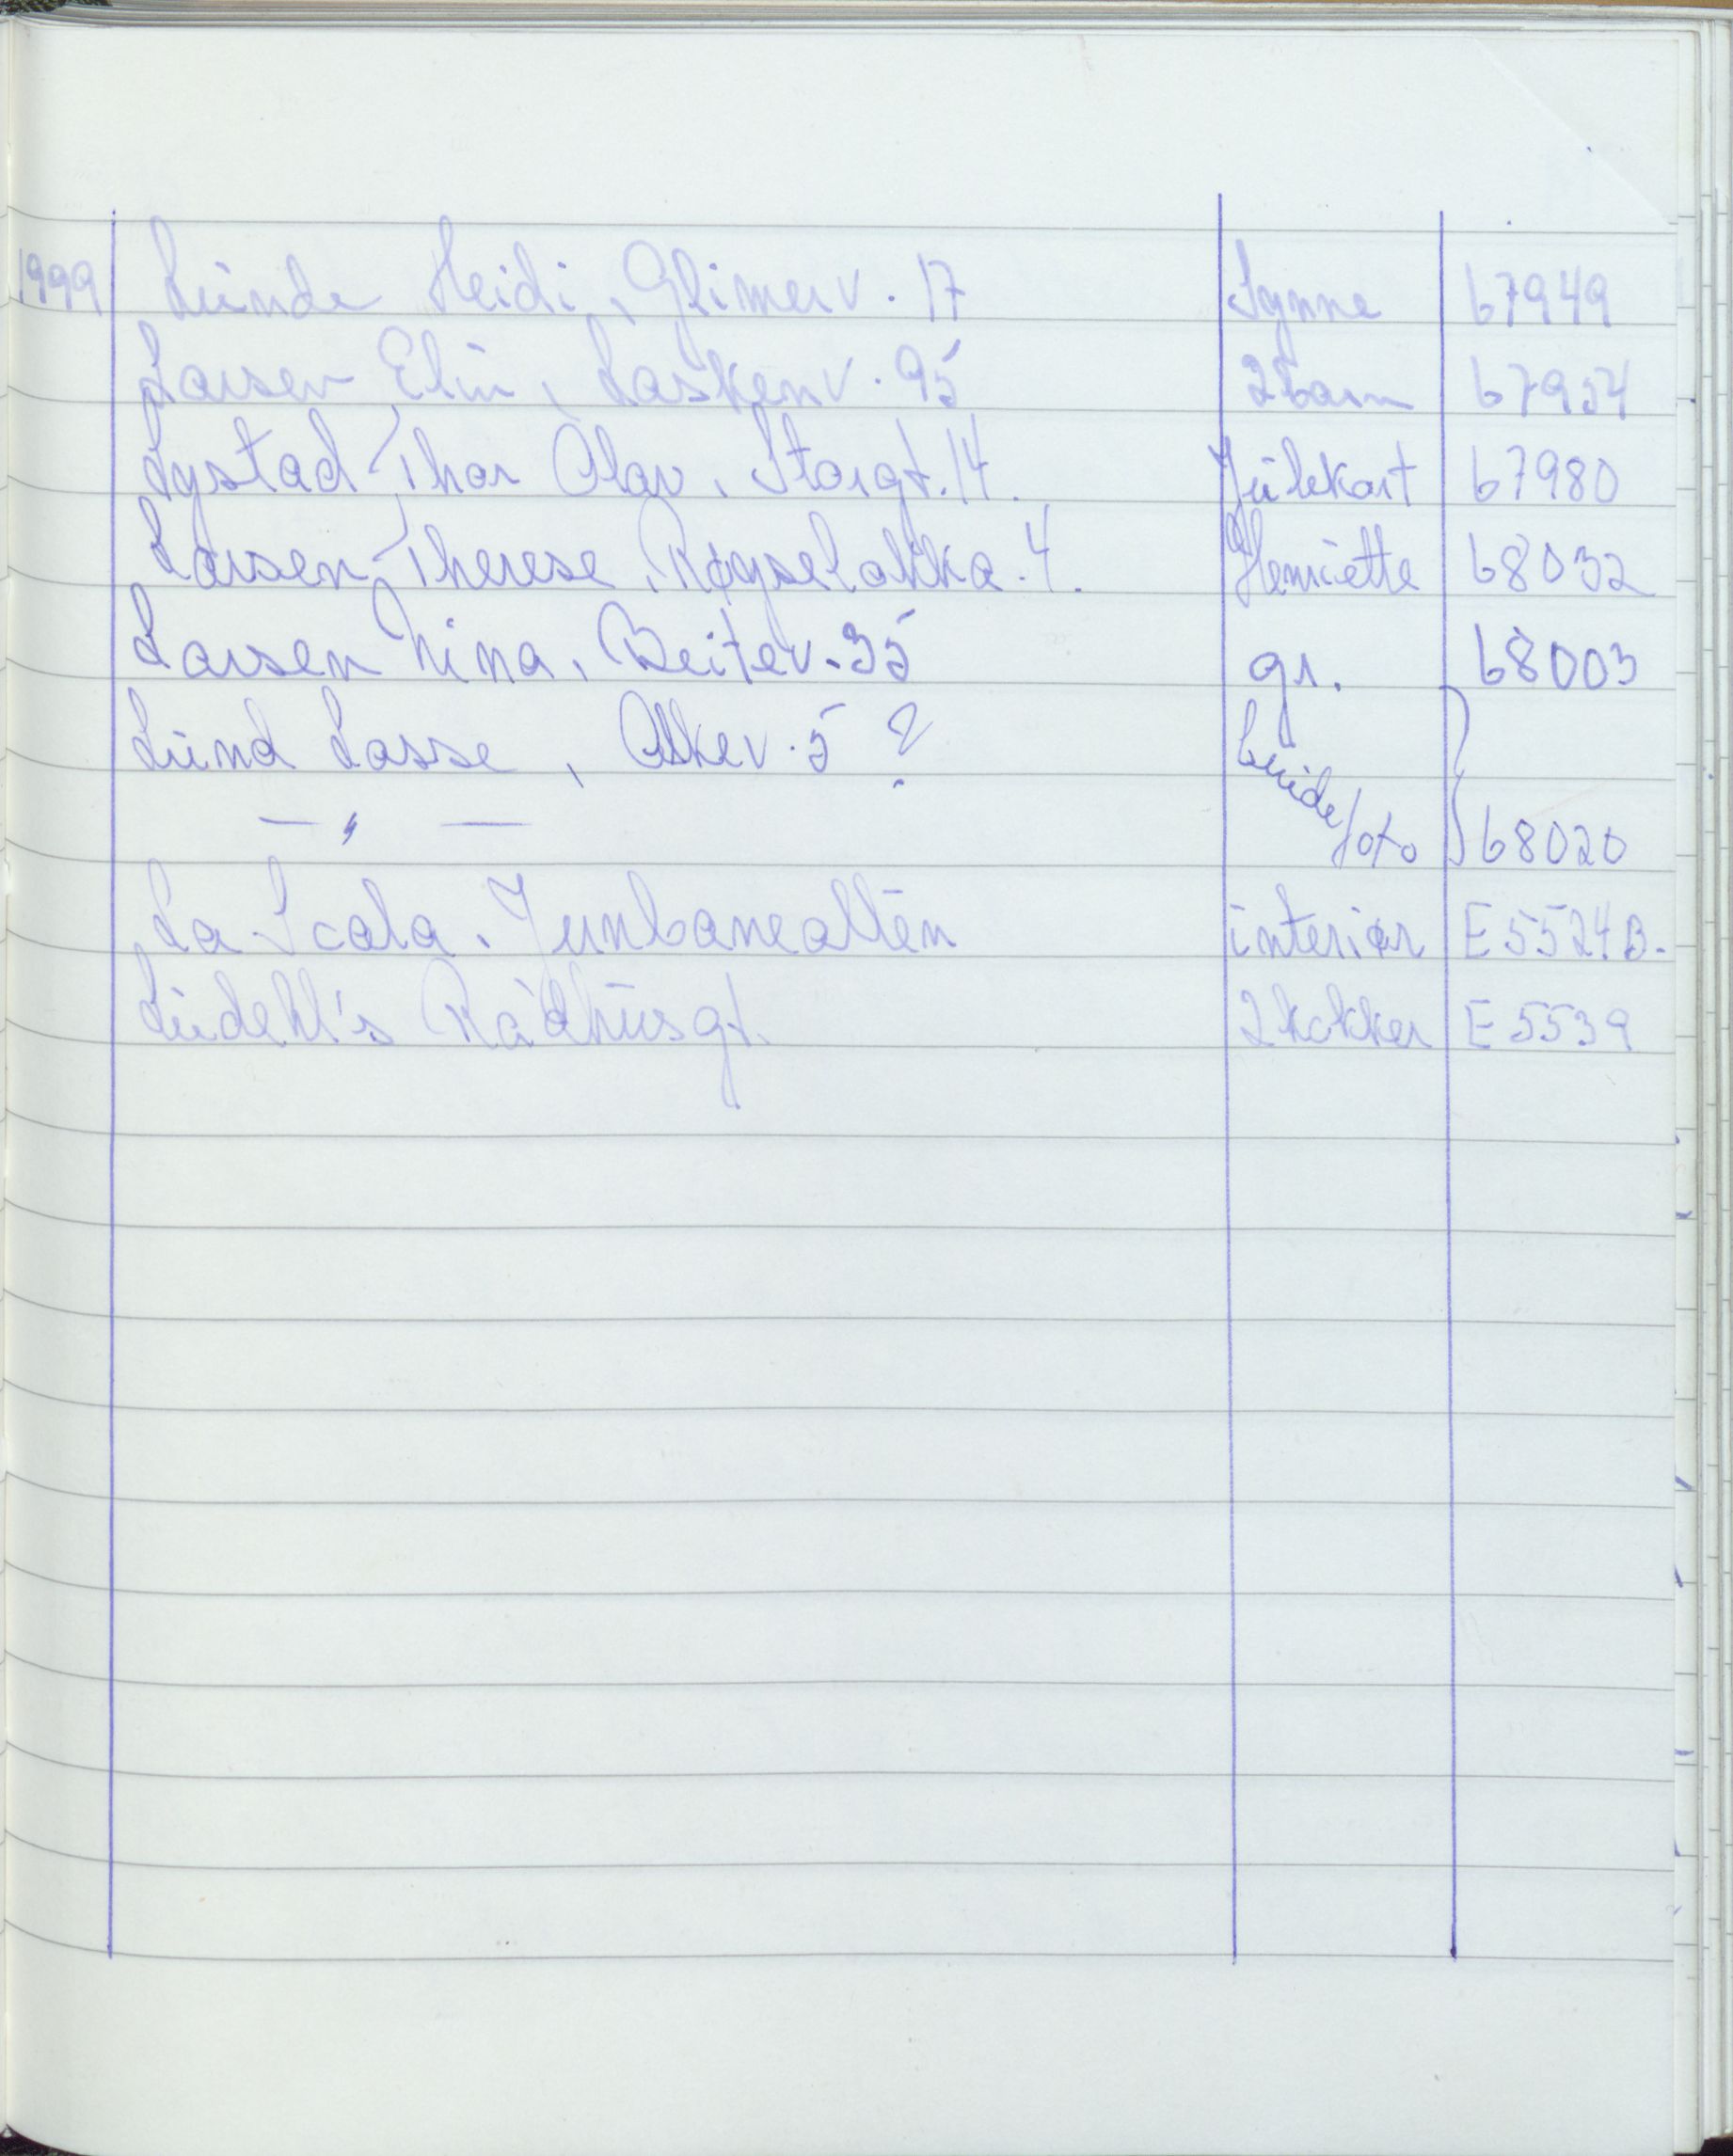 1999 Lunde Heidi, Glimerv. 17 Synne 67949
Larsen Elin, Laskenv. 95 2 barn 67954
Lystad Thor Olav, Storgt. 14. Julekort 67980
Larsen Therese, Røyseløkka 4. Henriette 68032
Larsen Nina, Beitev. 35 gr. 68003
Lund Lasse, Askev. 5 ? brude
— " — foto } 68020
La Scala. Jernbanealléen interiør E 5524 B.
Lüdehl's Rådhusgt. 2 kokker E 5539